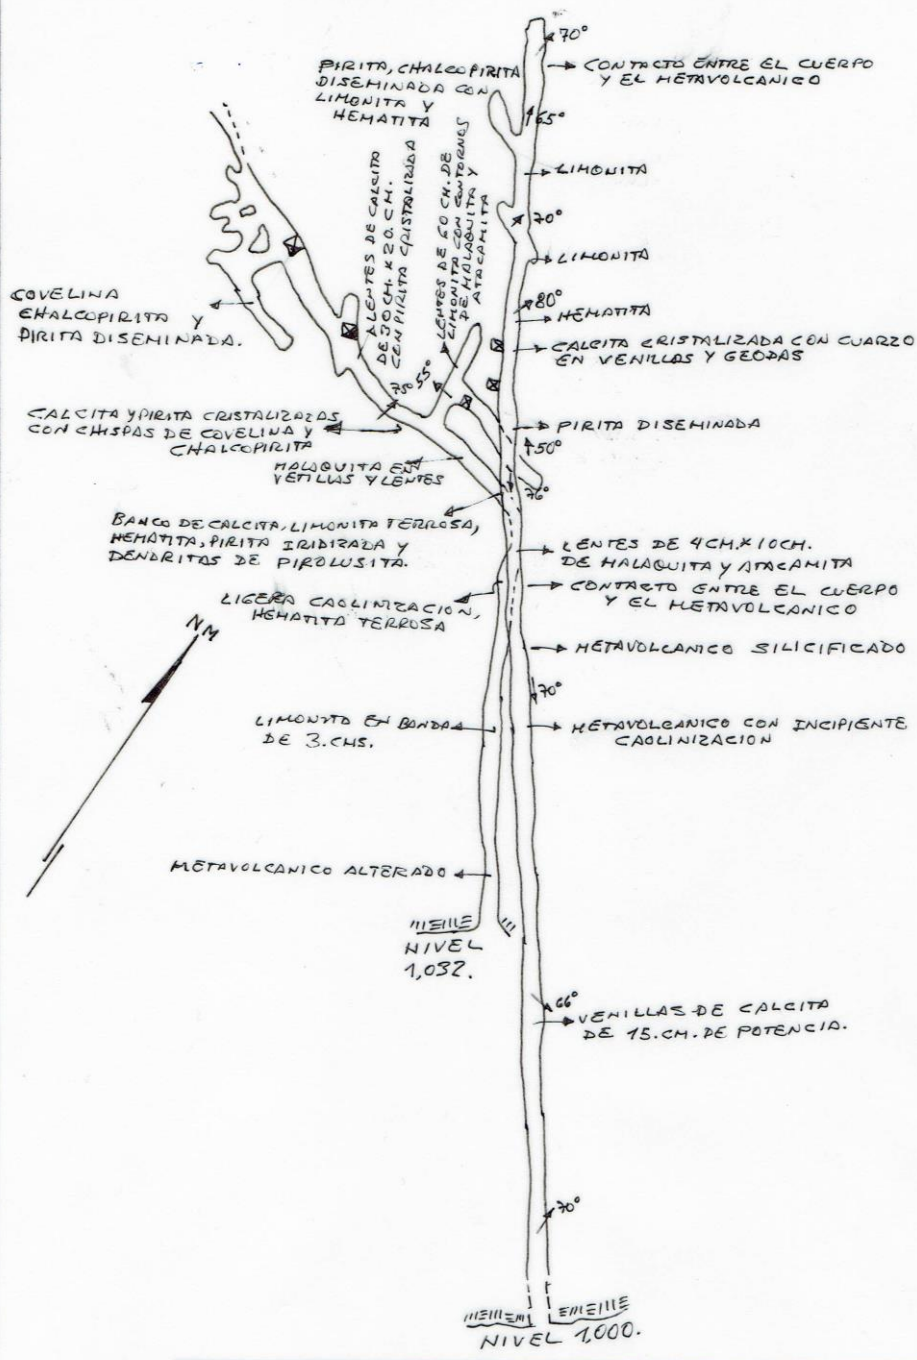 70°
PIRITA, CHALCOPIRITA
DISEMINADA CON
LIMONITA Y
HEMATITA
CONTACTO ENTRE EL CUERPO
Y EL METAVOLCANICO
65°
LIMONITA
LENTES DE CALCITA
DE 30 CM. X 20. CM.
CON PIRITA CRISTALIZADA
LENTES DE 60 CM. DE
LIMONITA CON CONTORNOS
DE MALAQUITA Y
ATACAMITA
70°
LIMONITA
COVELINA
CHALCOPIRITA Y
PIRITA DISEMINADA.
80°
HEMATITA
CALCITA CRISTALIZADA CON CUARZO
EN VENILLAS Y GEODAS
75°
55°
CALCITA Y PIRITA CRISTALIZAZAS
CON CHISPAS DE COVELINA Y
CHALCOPIRITA
PIRITA DISEMINADA
50°
MALAQUITA EN
VETILLAS Y LENTES
76°
BANCO DE CALCITA, LIMONITA TERROSA,
HEMATITA, PIRITA IRIDIZADA Y
DENDRITAS DE PIROLUSITA.
LENTES DE 4CM. X 10CM.
DE MALAQUITA Y ATACAMITA
CONTACTO ENTRE EL CUERPO
Y EL METAVOLCANICO
LIGERA CAOLINIZACION,
HEMATITA TERROSA
NM
METAVOLCANICO SILICIFICADO
70°
LIMONITO EN BANDAS
DE 3. CMS.
METAVOLCANICO CON INCIPIENTE
CAOLINIZACION
METAVOLCANICO ALTERADO
NIVEL
1,032.
66°
VENILLAS DE CALCITA
DE 15. CM. DE POTENCIA.
70°
NIVEL 1,000.